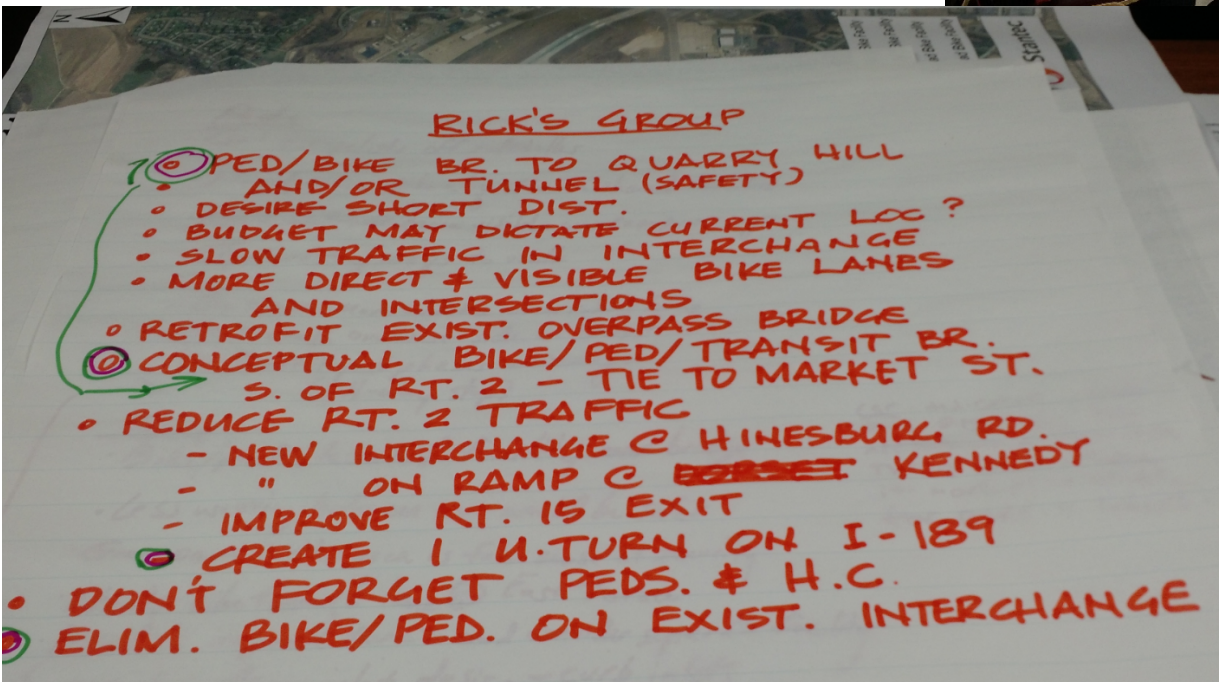 N
Stantec
RICK'S GROUP
• PED/BIKE BR. TO QUARRY HILL
• AND/OR TUNNEL (SAFETY)
• DESIRE SHORT DIST.
• BUDGET MAY DICTATE CURRENT LOC?
• SLOW TRAFFIC IN INTERCHANGE
• MORE DIRECT & VISIBLE BIKE LANES
AND INTERSECTIONS
• RETROFIT EXIST. OVERPASS BRIDGE
• CONCEPTUAL BIKE/PED/TRANSIT BR.
S. OF RT. 2 - TIE TO MARKET ST.
• REDUCE RT. 2 TRAFFIC
- NEW INTERCHANGE @ HINESBURG RD.
- " ON RAMP @ DORSET KENNEDY
- IMPROVE RT. 15 EXIT
- CREATE 1 U.TURN ON I-189
• DON'T FORGET PEDS. & H.C.
• ELIM. BIKE/PED. ON EXIST. INTERCHANGE